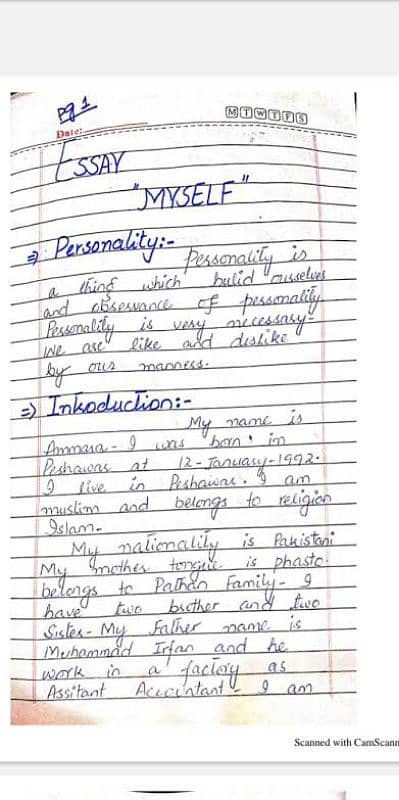 pg 1
M T W T F S
Date:
ESSAY
"MYSELF"
⇒ Personality:-
Personality is
a thing which bulid ourselves
and obserwance of personality.
Personality is very necessary-
We are like and dislike
by our manness.
⇒ Introduction:-
My name is
Ammara- I was born in
Peshawar at 12-January-1992.
I live in Peshawar. I am
muslim and belongs to religion
Islam-
My nationality is Pakistani
My mother tongue is phasto.
belongs to Pathan Family- I
have two brother and two
Sister- My Father name is
Mohammad Irfan and he
work in a factory as
Assitant Accountant- I am
Scanned with CamScann